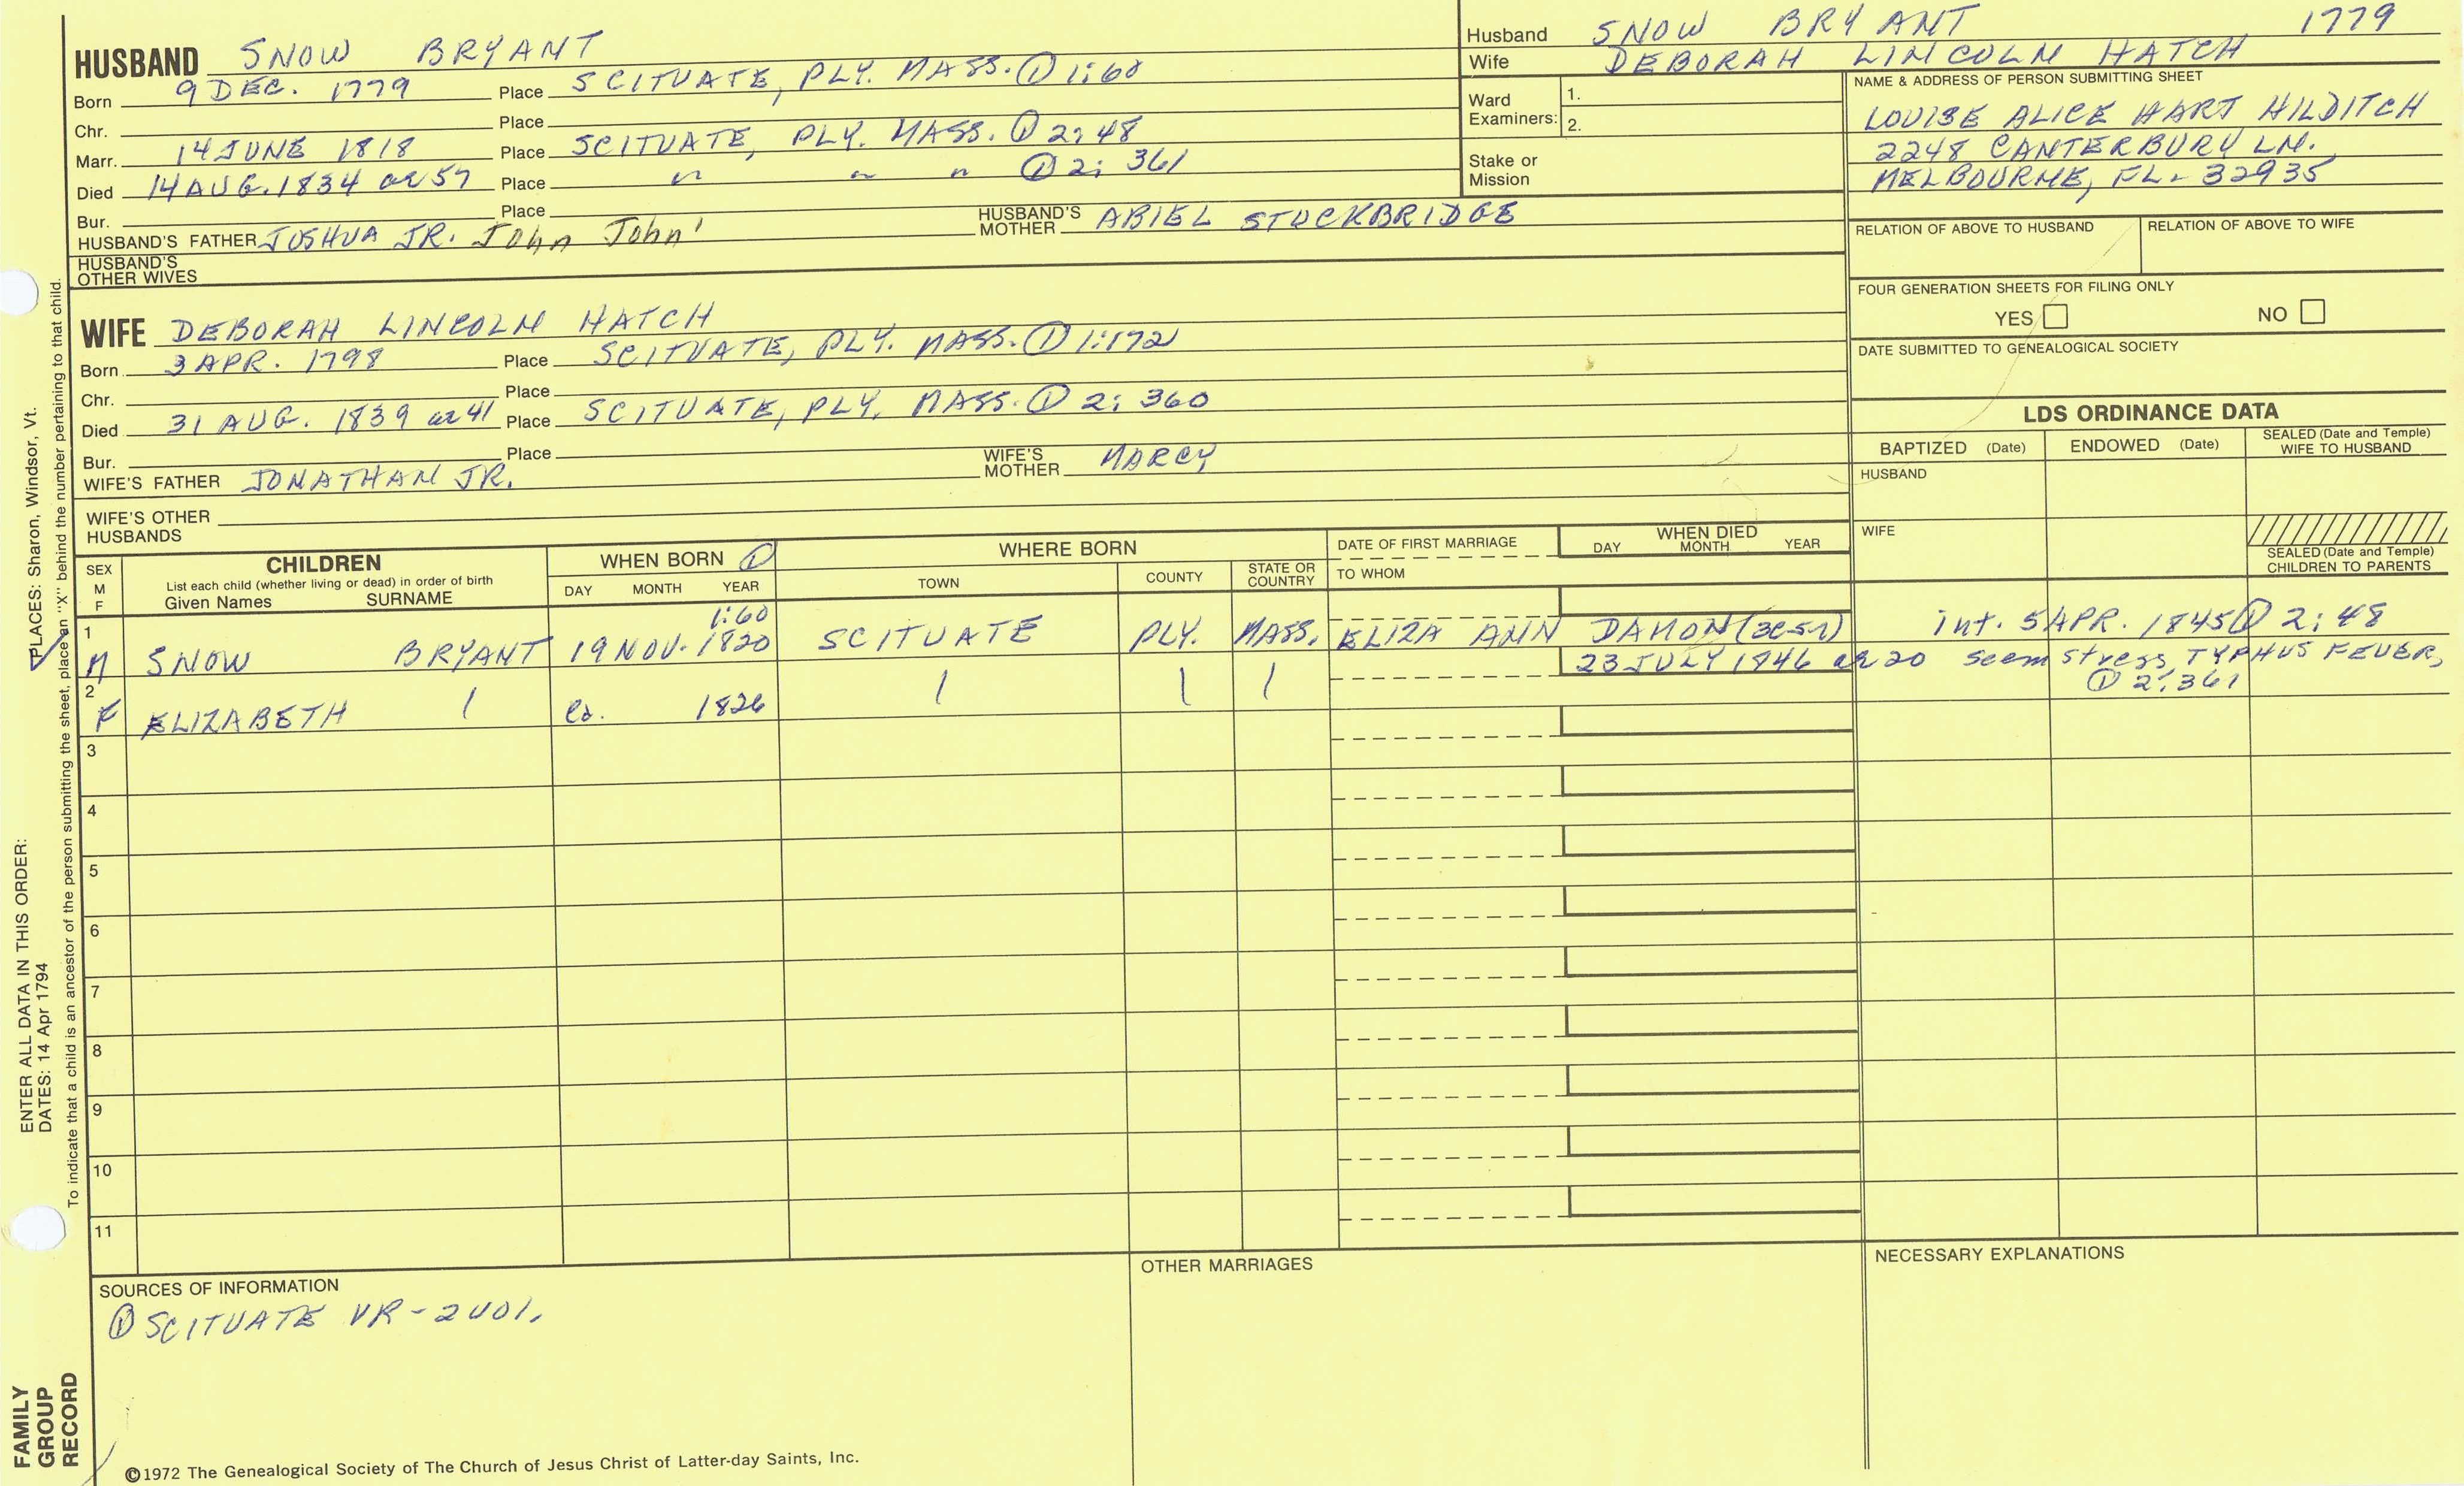 HUSBAND SNOW BRYANT
Born 9 DEC. 1779 Place SCITUATE, PLY. MASS. ① 1:60
Chr. Place
Marr. 14 JUNE 1818 Place SCITUATE, PLY. MASS. ① 2:48
Died 14 AUG. 1834 ae 57 Place " " " ① 2: 361
Bur. Place
HUSBAND'S FATHER JOSHUA JR. John John' HUSBAND'S MOTHER ABIEL STOCKBRIDGE
HUSBAND'S OTHER WIVES
WIFE DEBORAH LINCOLN HATCH
Born 3 APR. 1798 Place SCITUATE, PLY. MASS. ① 1:172
Chr. Place
Died 31 AUG. 1839 ae 41 Place SCITUATE, PLY. MASS. ① 2: 360
Bur. Place
WIFE'S FATHER JONATHAN JR. WIFE'S MOTHER MARCY
WIFE'S OTHER HUSBANDS
Husband SNOW BRYANT 1779
Wife DEBORAH LINCOLN HATCH
Ward Examiners: 1.
2.
Stake or Mission
NAME & ADDRESS OF PERSON SUBMITTING SHEET
LOUISE ALICE HART HILDITCH
2248 CANTERBURY LN.
MELBOURNE, FL. 32935
RELATION OF ABOVE TO HUSBAND RELATION OF ABOVE TO WIFE
FOUR GENERATION SHEETS FOR FILING ONLY
YES NO
DATE SUBMITTED TO GENEALOGICAL SOCIETY
LDS ORDINANCE DATA
BAPTIZED (Date) ENDOWED (Date) SEALED (Date and Temple) WIFE TO HUSBAND
HUSBAND
WIFE
SEALED (Date and Temple) CHILDREN TO PARENTS
SEX M F
CHILDREN
List each child (whether living or dead) in order of birth
Given Names SURNAME
WHEN BORN ①
DAY MONTH YEAR
WHERE BORN
TOWN COUNTY STATE OR COUNTRY
DATE OF FIRST MARRIAGE
TO WHOM
WHEN DIED
DAY MONTH YEAR
1:60
1 M SNOW BRYANT 19 NOV. 1820 SCITUATE PLY. MASS. ELIZA ANN DAMON int. 5 APR. 1845 ① 2:48
23 JULY 1846 ae 20 seemstress, TYPHUS FEVER,
① 2:361
2 F ELIZABETH / ca. 1826 / / /
3
4
5
6
7
8
9
10
11
SOURCES OF INFORMATION
① SCITUATE VR-2 VOL.
OTHER MARRIAGES
NECESSARY EXPLANATIONS
©1972 The Genealogical Society of The Church of Jesus Christ of Latter-day Saints, Inc.
FAMILY GROUP RECORD
ENTER ALL DATA IN THIS ORDER:
DATES: 14 Apr 1794
PLACES: Sharon, Windsor, Vt.
To indicate that a child is an ancestor of the person submitting the sheet, place an "X" behind the number pertaining to that child.